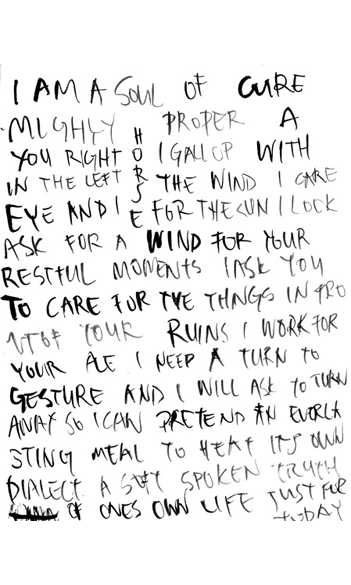 I AM A SOUL OF CURE
MIGHLY PROPER A
HORSE
YOU RIGHT I GALLOP WITH
IN THE LEFT THE WIND I CARE
EYE AND I FOR THE SUN I LOOK
ASK FOR A WIND FOR YOUR
RESTFUL MOMENTS I ASK YOU
TO CARE FOR THE THINGS IN FRO
NT OF YOUR RUINS I WORK FOR
YOUR I NEED A TURN TO
GESTURE AND I WILL ASK TO TURN
AWAY SO I CAN PRETEND AN EVERLA
STING MEAL TO HEAT IT'S OWN
DIALECT A SOFT SPOKEN TRUTH
OF ONES OWN LIFE JUST FOR
TODAY